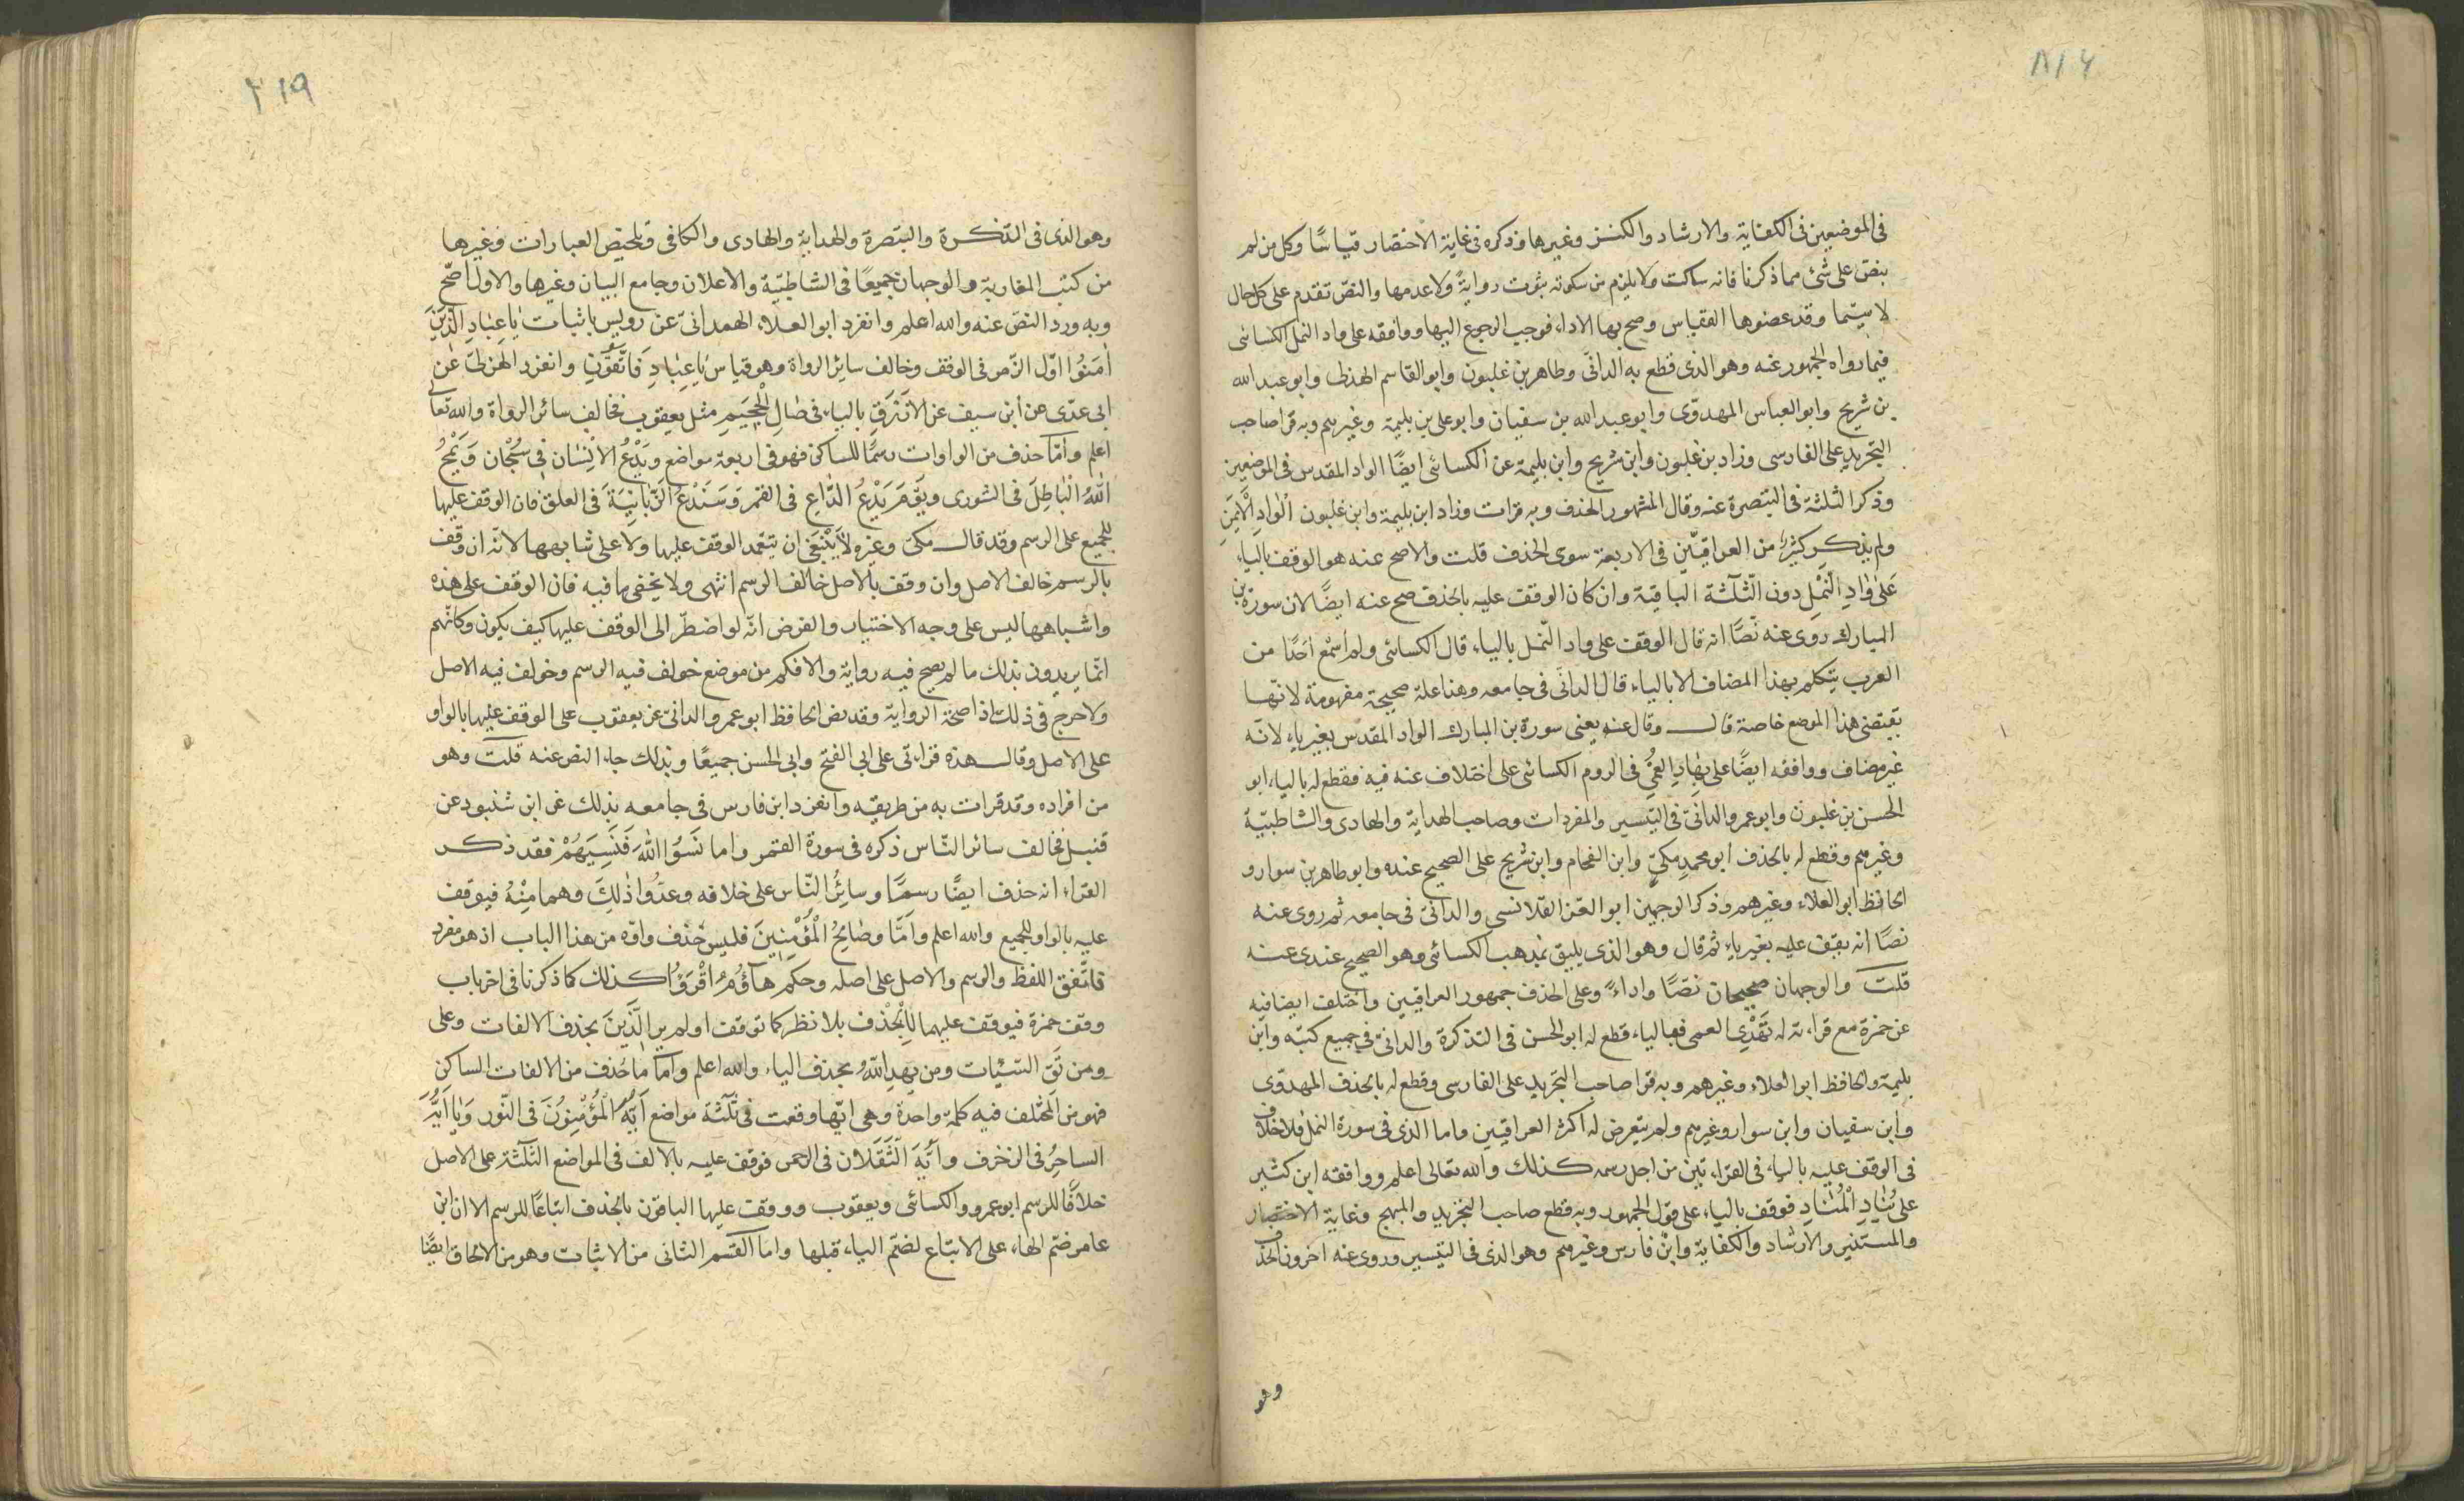 ٨١٢
فى الموضعين فى الكفاية والارشاد والكنز وغيرها وذكره فى غاية الاختصار قياسًا وكل من لم
ينص على شئ مما ذكرنا فانه ساكت ولا يلزم من سكوته ثبوت رواية ولا عدمها والنص تقدم على كل حال
لا سيّما وقد عضوها القياس وصح بها الاداء فوجب الرجوع اليها ووافقه على واد النمل الكسائى
فيما رواه الجمهور عنه وهو الذى قطع به الدانى وطاهر بن غلبون وابو القاسم الهذلى وابو عبد الله
بن شريح وابو العباس المهدوّى وابو عبد الله بن سفيان وابو على بن بليمة وغيرهم وبه قرا صاحب
التجريد على الفارسى وزاد بن غلبون وابن شريح وابن بليمة عن الكسائى ايضًا الواد المقدس فى الموضعين
وذكر الثلثة فى التبصرة عنه وقال المشهور الحذف وبه قرات وزاد ابن بليمة وابن غلبون الْوَادِ الْاَيْمَنِ
ولم يذكر كثير من العراقيّين فى الاربعة سوى الحذف قلت والاصح عنه هو الوقف بالياء
عَلٰى وَادِ النَّمْلِ دون الثّلٰثة الباقية وان كان الوقف عليه بالحذف صح عنه ايضًا لان سورة بن
المبارك روى عنه نصًّا انه قال الوقف على واد النّمل بالياء قال الكسائى ولم اسْمَعْ اَحَدًا من
العرب يتكلم بهذا المضاف الا بالياء قال الدانى فى جامعه وهنا علة صحيحة مفهومة لانّها
تقتضى هذا الموضع خاصة قال وقال عنه يعنى سورة بن المبارك الواد المقدّس بغير ياء لانّه
غير مضاف ووافقه ايضًا على بِهَادِ الْعُمْىِ فى الروم الكسائى على اختلاف عنه فيه فقطع له بالياء ابو
الحسن بن غلبون وابو عمرو الدانى فى التيسير والمفردات وصاحب الهداية والهادى والشاطبيّة
وغيرهم وقطع له بالحذف ابو محمدٍ مكىّ وابن الفحام وابن شريح على الصحيح عنده وابو طاهر بن سوار و
الحافظ ابو العلاء وغيرهم وذكر الوجهين ابو العز القلانسى والدانىّ فى جامعه ثم روى عنه
نصًا انه يقف عليه بغير ياء ثم قال وهو الذى يليق بمذهب الكسائى وهو الصحيح عندى عنه
قلت والوجهان صحيحان نصًا واداءً وعلى الحذف جمهور العراقيين واختلف ايضا فيه
عن حمزة مع قراءته له تَهْدِى العمى فبالياء قطع له ابو الحسن فى التذكرة والدانىّ فى جميع كتبه وابن
بليمة والحافظ ابو العلاء وغيرهم وبه قرا صاحب التجريد على الفارسى وقطع له بالحذف المهدوّى
وابن سفيان وابن سوار وغيرهم ولم يتعرض له اكثر العراقيين واما الذى فى سورة النمل فلا خلاف
فى الوقف عليه بالياء فى القراءتين من اجل رسمه كذلك والله تعالى اعلم ووافقه ابن كثير
على يُنَادِ الْمُنَادِ فوقف بالياء على قول الجمهور وبه قطع صاحب التجريد والمبهج وغاية الاختصار
والمستنير والارشاد والكفاية وابن فارس وغيرهم وهو الذى فى التيسير وروى عنه اخرون الحذف
وهو
٢١٩
وهو الذى فى التذكرة والتبصرة والهداية والهادى والكافى وتلخيص العبارات وغيرها
من كتب المغاربة والوجهان جميعًا فى الشاطبيّة والاعلان وجامع البيان وغيرها والاول اصّح
وبه ورد النصّ عنه والله اعلم وانفرد ابو العلاء الهمدانىّ عن رويس باثبات يَا عِبَادِ الَّذِينَ
اٰمَنُوْا اوّل الزّمر فى الوقف وخالف سائر الرواة وهو قياس يَا عِبَادِ فَاتَّقُوْنِ وانفرد الهذلىّ عن
ابى عدّى عن ابن سيف عن الازرق بالياء فى صَالِ الْجَحِيْمِ مثل يعقوب فخالف سائر الرواة والله تعالى
اعلم واما حذف من الواوات رسمًا للساكن فهو فى اربعة مواضع وَيَدْعُ الْاِنْسَان فى سُبْحَان وَيَمْحُ
اللّٰهُ الْبَاطِلَ فى الشورى ويَوْمَ يَدْعُ الدَّاعِ فى القمر وَسَنَدْعُ الزَّبَانِيَةَ فى العلق فان الوقف عليها
للجميع على الرسم وقد قال مكىّ وغيره لا يَنْبَغِى ان يتعمد الوقف عليها ولا على شابهها لانّه ان وقف
بالرسم خالف الاصل وان وقف بالاصل خالف الرسم انتهى ولا يخفى ما فيه فان الوقف على هذه
واشباهها ليس على وجه الاختيار والفرض انّه لو اضطرّ الى الوقف عليها كيف يكون وكانّهم
انّما يريدون بذلك ما لم يصح فيه رواية والا فكم من موضع خولف فيه الرسم وخولف فيه الاصل
ولا حرج فى ذلك اذا صحّة الرواية وقد نص الحافظ ابو عمرو الدانىّ عن يعقوب على الوقف عليها بالواو
على الاصل وقال هذه قراءتى على ابى الفتح وابى الحسن جميعًا وبذلك جاء النص عنه قلت وهو
من افراده وقد قرات به من طريقه وانفرد ابن فارس فى جامعه بذلك عن ابن شنبوذ عن
قنبل فخالف سائر النّاس ذكره فى سورة القمر واما نَسُوا اللّٰهَ فَنَسِيَهُمْ فقد ذكر
الفرّاء انه حذف ايضًا رسمًا وسائر النّاس على خلافه وعدّوا ذٰلِكَ وهما مِنْهُ فيوقف
عليه بالواو للجميع والله اعلم وامّا وصَالِحُ الْمُؤْمِنِيْنَ فليس حذف واوه من هذا الباب اذ هو مفرد
فاتفق اللفظ والرسم والاصل على اصله وحكم هَاؤُمُ اقْرَؤُا كذلك كما ذكرنا فى اخر باب
وقف حمزة فيوقف عليهما بالحذف بلا نظر كما توقف اولم ير الَّذِيْنَ بحذف الالفات وعلى
ومن تَقِ السّيّئات ومن يهدِ اللّٰهُ بحذف الياء والله اعلم وامّا ما حُذف من الالفات الساكن
فهو من المختلف فيه كلمة واحدة وهى ايّها وقعت فى ثلٰثة مواضع اَيُّهَ الْمُؤْمِنُوْنَ فى النّور وَيَا اَيُّهَ
السَاحِرُ فى الزخرف وَاَيُّهَ الثَّقَلَان فى الرحمن فوقف عليه بالالف فى المواضع الثّلٰثة على الاصل
خلافًا للرسم ابو عمرو والكسائى ويعقوب ووقف عليها الباقون بالحذف اتباعًا للرسم الا ان ابن
عامر ضمّ الهاء على الاتباع لضمّ الياء قبلها واما القسم الثانى من الاثبات وهو من الالحاق ايضًا